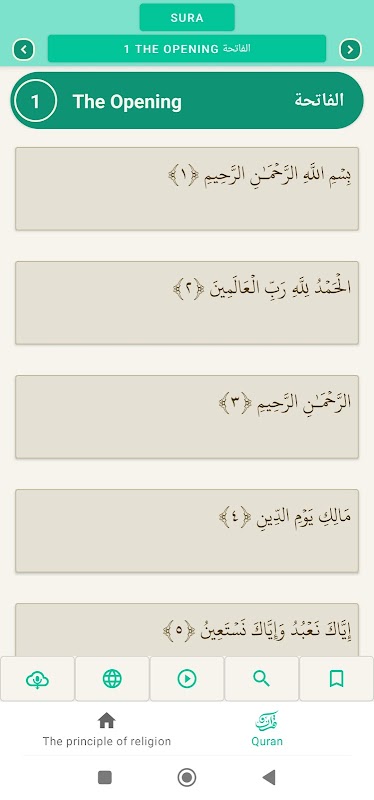 SURA
1 THE OPENING الفاتحة
1 The Opening الفاتحة
بِسْمِ اللَّهِ الرَّحْمَـٰنِ الرَّحِيمِ ﴿١﴾
الْحَمْدُ لِلَّهِ رَبِّ الْعَالَمِينَ ﴿٢﴾
الرَّحْمَـٰنِ الرَّحِيمِ ﴿٣﴾
مَالِكِ يَوْمِ الدِّينِ ﴿٤﴾
إِيَّاكَ نَعْبُدُ وَإِيَّاكَ نَسْتَعِينُ ﴿٥﴾
The principle of religion
Quran